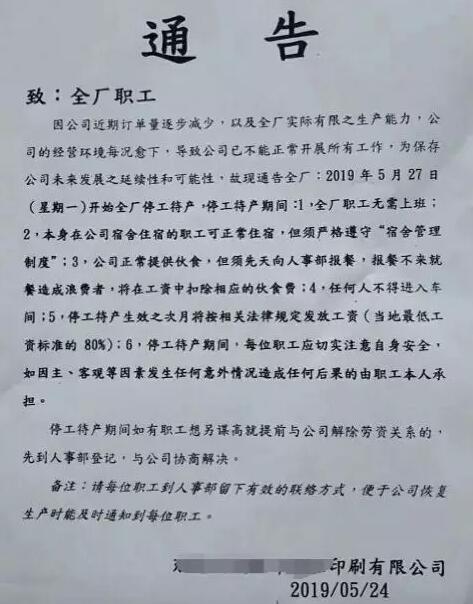 通 告
致：全厂职工
因公司近期订单量逐步减少，以及全厂实际有限之生产能力，公
司的经营环境每况愈下，导致公司已不能正常开展所有工作，为保存
公司未来发展之延续性和可能性，故现通告全厂：2019 年 5 月 27 日
（星期一）开始全厂停工待产，停工待产期间：1，全厂职工无需上班；
2，本身在公司宿舍住宿的职工可正常住宿，但须严格遵守“宿舍管理
制度”；3，公司正常提供伙食，但须先天向人事部报餐，报餐不来就
餐造成浪费者，将在工资中扣除相应的伙食费；4，任何人不得进入车
间；5，停工待产生效之次月将按相关法律规定发放工资（当地最低工
资标准的 80%）；6，停工待产期间，每位职工应切实注意自身安全，
如因主、客观等因素发生任何意外情况造成任何后果的由职工本人承
担。
停工待产期间如有职工想另谋高就提前与公司解除劳资关系的，
先到人事部登记，与公司协商解决。
备注：请每位职工到人事部留下有效的联络方式，便于公司恢复
生产时能及时通知到每位职工。
印刷有限公司
2019/05/24